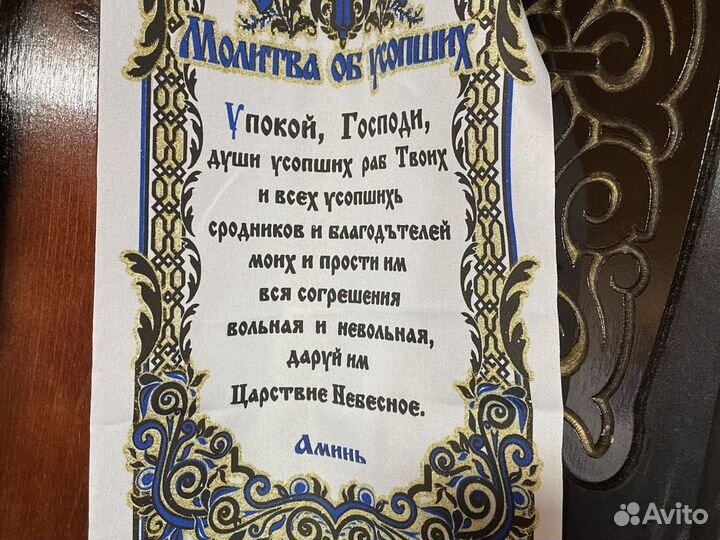 Молитва об усопших
Упокой, Господи,
души усопших раб Твоих
и всех усопшихь
сродников и благодѣтелей
моих и прости им
вся согрешения
вольная и невольная,
даруй им
Царствие Небесное.
Аминь
Avito